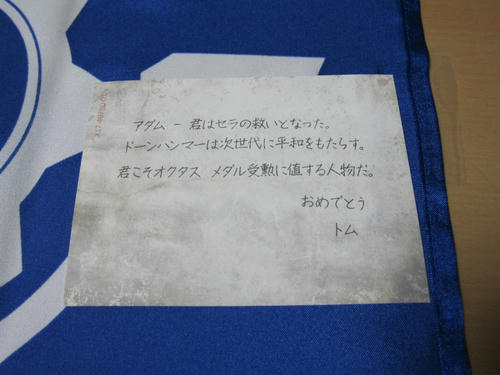 アダム － 君はセラの救いとなった。
ドーンハンマーは次世代に平和をもたらす。
君こそオクタス メダル受勲に値する人物だ。
おめでとう
トム